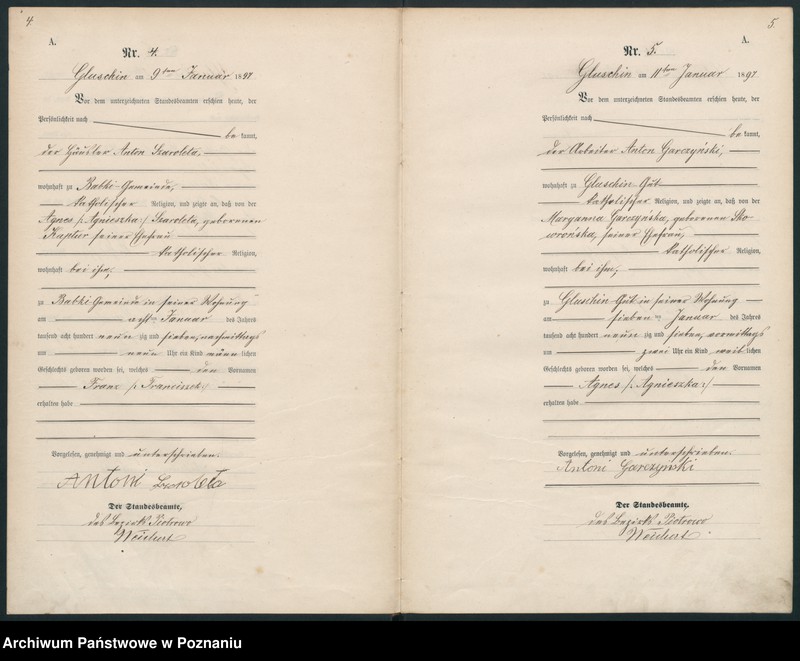 4.
A.
Nr. 4.
Gluschin am 9ten Januar 1897
Vor dem unterzeichneten Standesbeamten erschien heute, der
Persönlichkeit nach
be kannt,
der Häusler Anton
wohnhaft zu Babki Gemeinde,
katholischer Religion, und zeigte an, daß von der
Agnes /: Agnieszka :/ geborenen
Kaptur seiner Ehefrau
katholischer Religion,
wohnhaft bei ihm,
zu Babki Gemeinde in seiner Wohnung
am acht ten Januar des Jahres
tausend acht hundert neun zig und sieben, nachmittags
um neun Uhr ein Kind männ lichen
Geschlechts geboren worden sei, welches den Vornamen
Franz /: Franciszek :/
erhalten habe
Vorgelesen, genehmigt und unterschrieben.
Antoni
Der Standesbeamte,
des Bezirks Piotrowo
Weichert
5.
A.
Nr. 5.
Gluschin am 11ten Januar 1897
Vor dem unterzeichneten Standesbeamten erschien heute, der
Persönlichkeit nach
be kannt,
der Arbeiter Anton Garczyński,
wohnhaft zu Gluschin Gut
katholischer Religion, und zeigte an, daß von der
Maryanna Garczyńska, geborenen Sko-
wrońska, seiner Ehefrau,
katholischer Religion,
wohnhaft bei ihm,
zu Gluschin Gut in seiner Wohnung
am sieben ten Januar des Jahres
tausend acht hundert neun zig und sieben, vormittags
um zwei Uhr ein Kind weib lichen
Geschlechts geboren worden sei, welches den Vornamen
Agnes /: Agnieszka :/
erhalten habe
Vorgelesen, genehmigt und unterschrieben.
Antoni Garczyński
Der Standesbeamte,
des Bezirks Piotrowo
Weichert
Archiwum Państwowe w Poznaniu